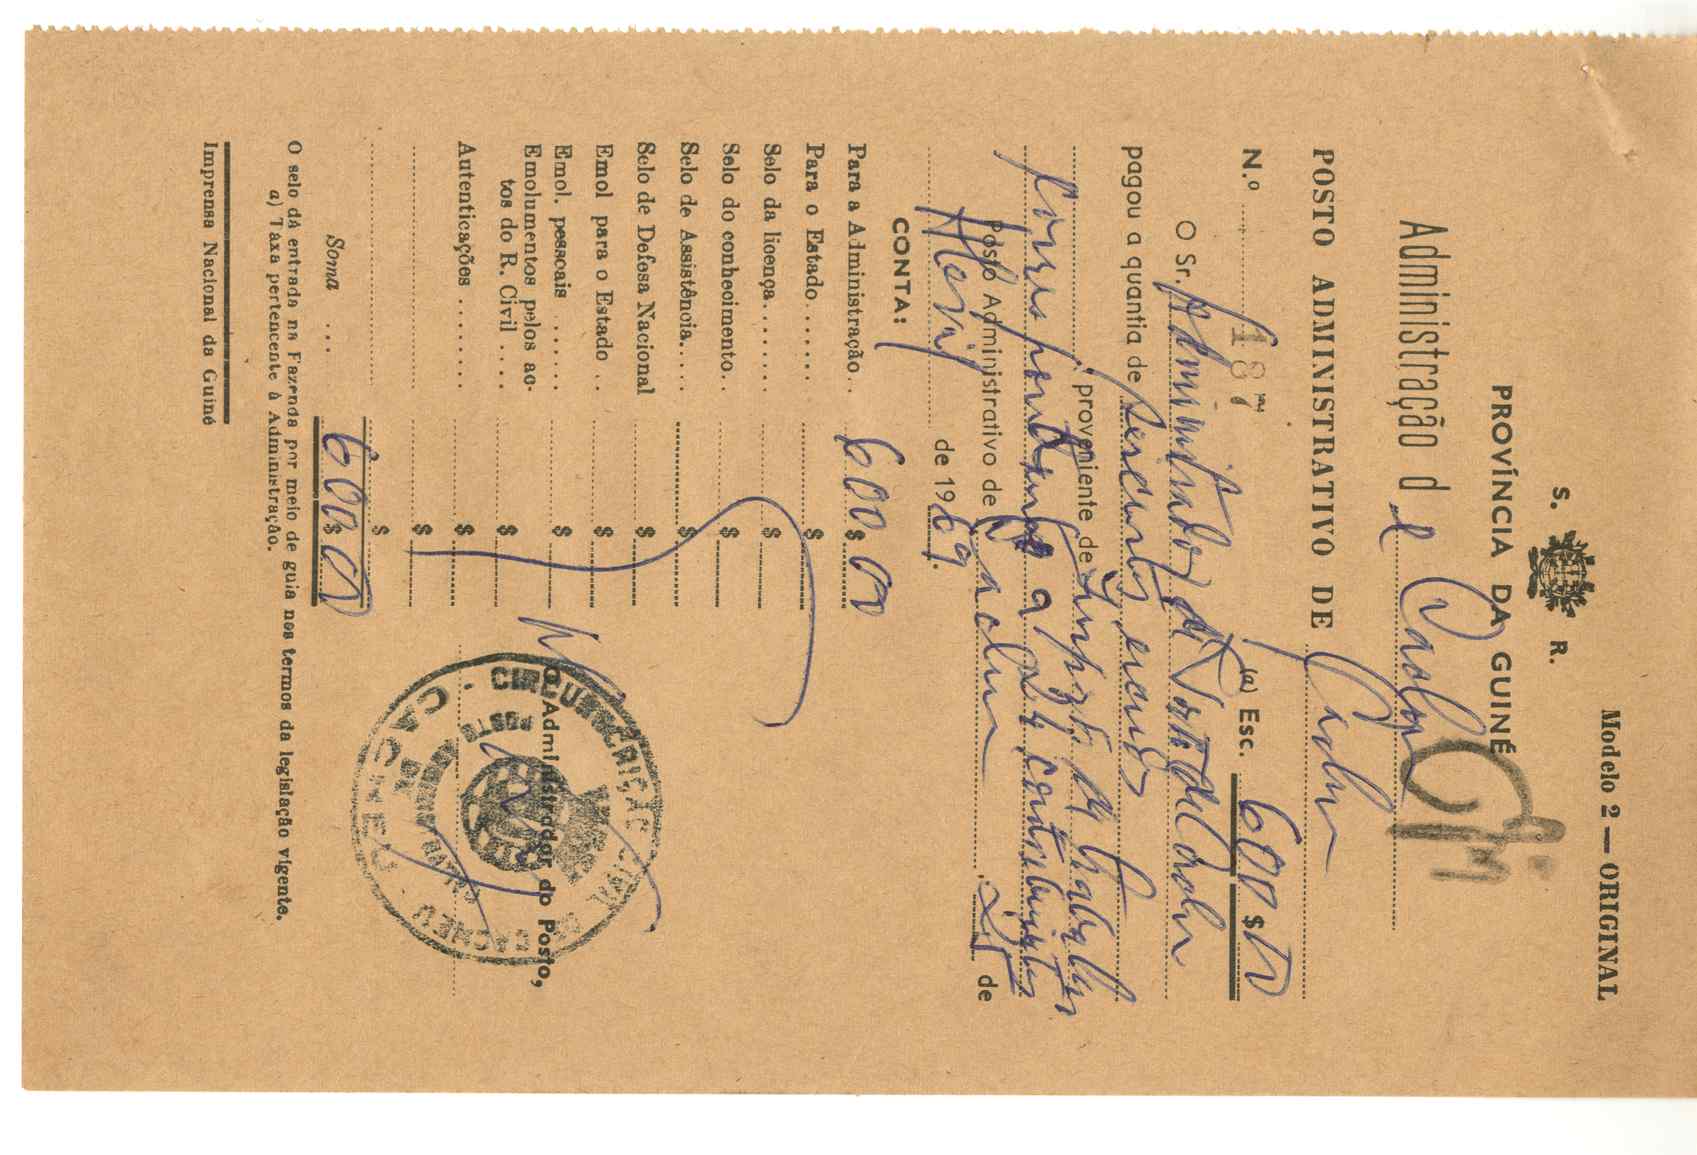 Modelo 2 — ORIGINAL
S. R.
PROVÍNCIA DA GUINÉ
Administração d e
POSTO ADMINISTRATIVO DE
N.º 187 (a) Esc. 600 $ 00
O Sr. Administrador de
pagou a quantia de seiscentos escudos
proveniente de Imposto de trabalho
correspondente a contribuintes
Posto Administrativo de , 25 de
de 1969.
CONTA:
Para a Administração .. 600 $ 00
Para o Estado ....... $
Selo da licença ....... $
Selo do conhecimento .. $
Selo de Assistência .... $
Selo de Defesa Nacional $
Emol para o Estado .. $
Emol. pessoais ...... $
Emolumentos pelos ac-
tos do R. Civil .... $
Autenticações ....... $
$
$
Soma ... 600 $ 00
O Administrador do Posto,
CIRCUNSCRIÇÃO CIVIL DE CACHEU
O selo dá entrada na Fazenda por meio de guia nos termos da legislação vigente.
a) Taxa pertencente à Administração.
Imprensa Nacional da Guiné